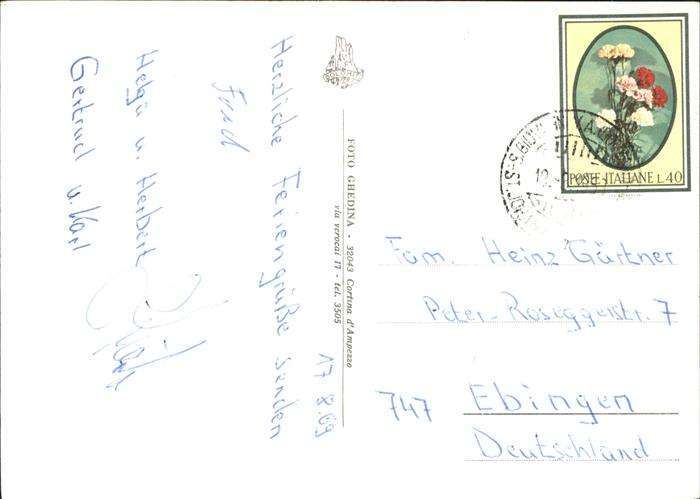 17.8.69
Herzliche Feriengrüße senden
Helga u. Herbert
Gertrud u. Karl
FOTO GHEDINA - 32043 Cortina d'Ampezzo
via verocai 11 - tel. 3505
POSTE ITALIANE L.40
Fam. Heinz Gärtner
Peter-Roseggerstr. 7
747 Ebingen
Deutschland